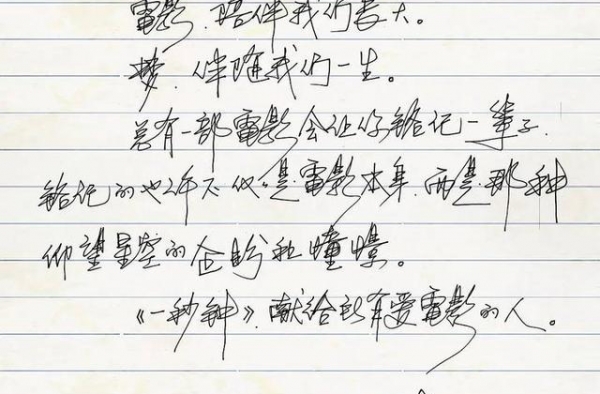 電影,陪伴我们长大。
梦,伴随我们一生。
总有一部電影会让你铭记一辈子,
铭记的也许不仅是電影本身,而是那种
仰望星空的企盼和憧憬。
《一秒钟》,献给所有爱電影的人。